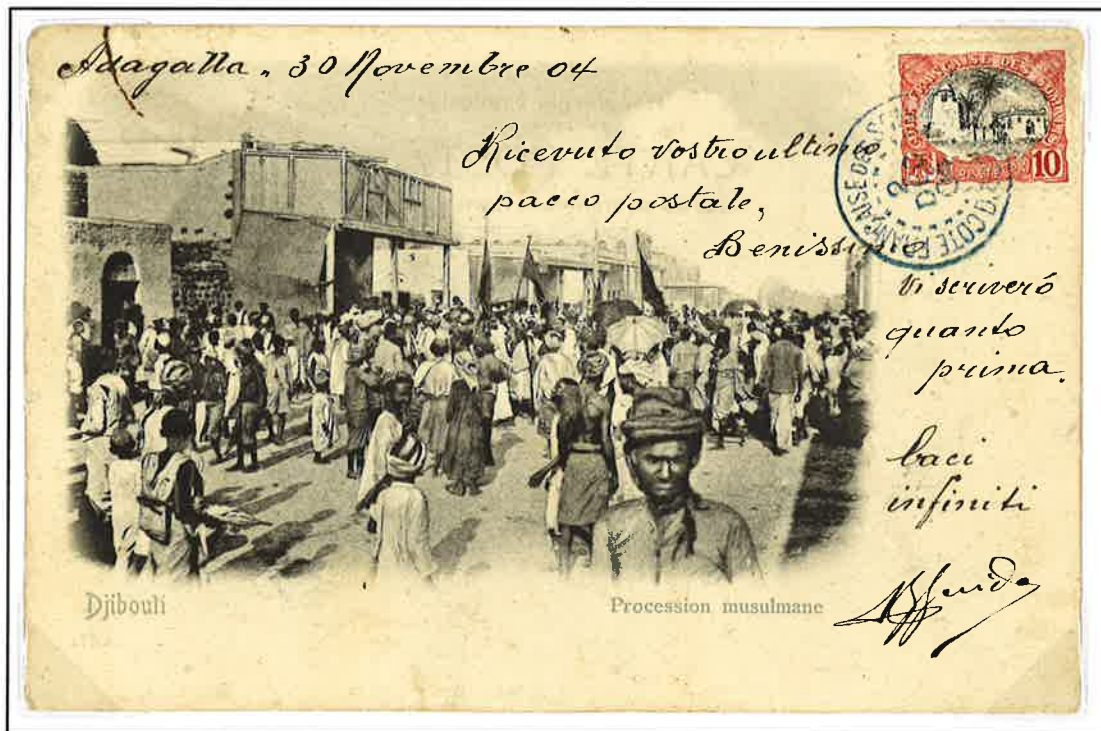 Adagalla, 30 Novembre 04
Ricevuto vostro ultimo
pacco postale,
Benissimo
Vi scriveró
quanto
prima.
baci
infiniti
COTE FRANÇAISE DES SOMALIS
POSTES
10
COTE FRANÇAISE DES
2
Djibouti
Procession musulmane